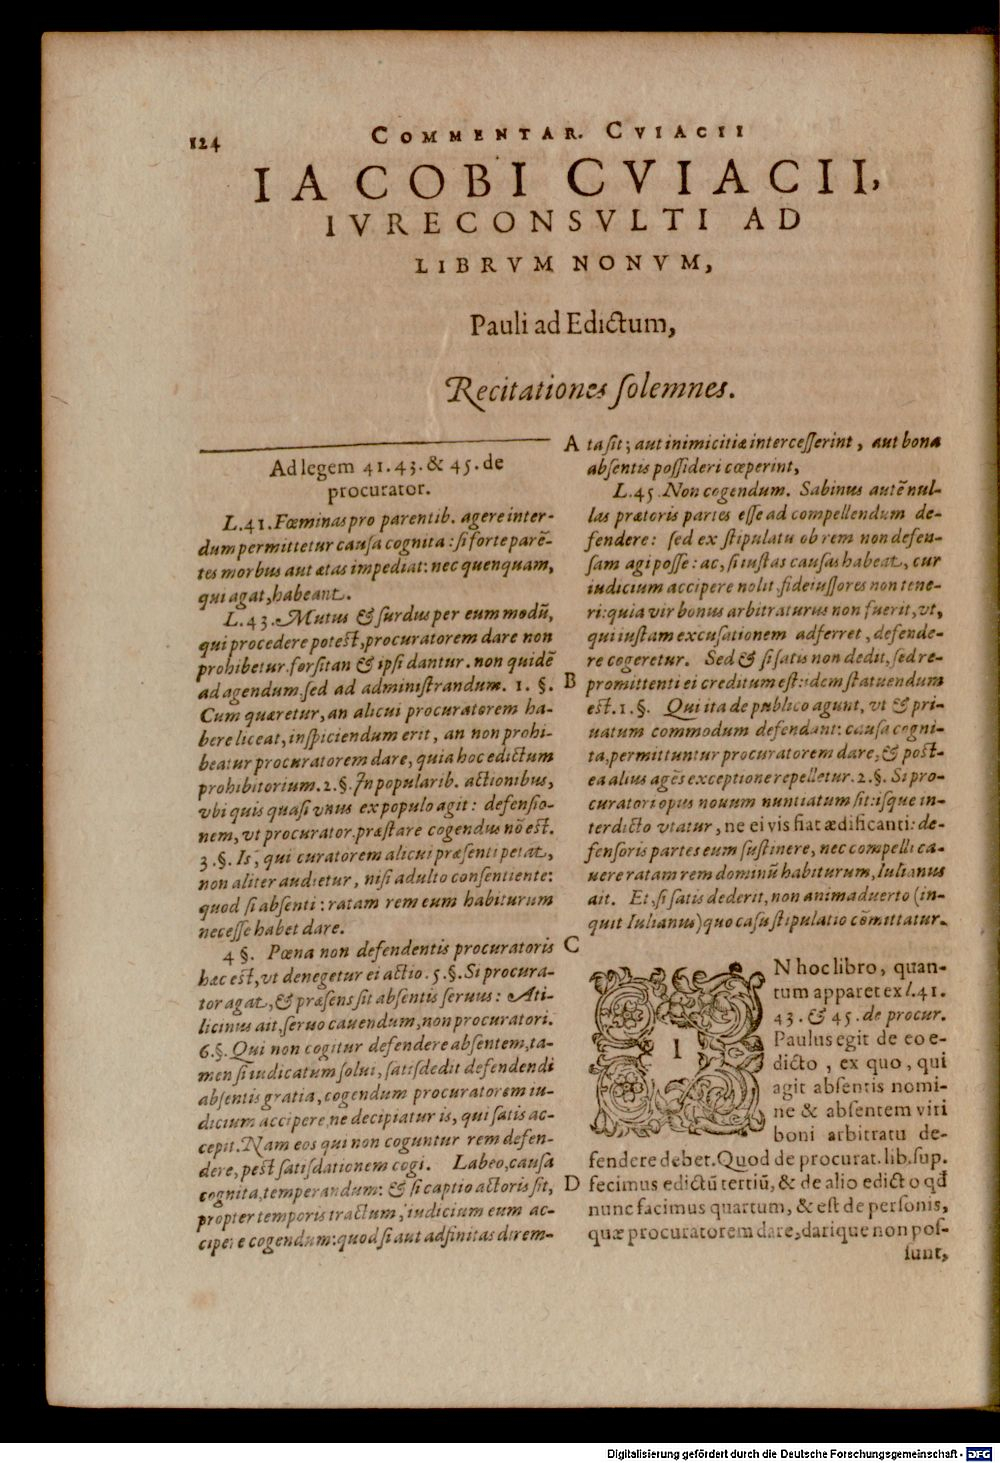 124
COMMENTAR. CVIACII
IACOBI CVIACII,
IVRECONSVLTI AD
LIBRVM NONVM,
Pauli ad Edictum,
Recitationes ſolemnes.
Ad legem 41. 43. & 45. de
procurator.
L.41. Fœminas pro parentib. agere inter-
dum permittetur cauſa cognita: ſi forte parẽ-
tes morbus aut ætas impediat: nec quenquam,
qui agat, habeant.
L.43. Mutus & ſurdus per eum modũ,
qui procedere poteſt, procuratorem dare non
prohibetur. forſitan & ipſi dantur. non quidẽ
ad agendum. ſed ad adminiſtrandum. 1. §.
Cum quæretur, an alicui procuratorem ha-
bere liceat, inſpiciendum erit, an non prohi-
beatur procuratorem dare, quia hoc edictum
prohibitorium. 2. §. In popularib. actionibus,
vbi quis quaſi vnus ex populo agit: defenſio-
nem, vt procurator. præſtare cogendus nõ eſt.
3. §. Is, qui curatorem alicui præſenti petat,
non aliter audietur, niſi adulto conſentiente:
quod ſi abſenti: ratam rem eum habiturum
neceſſe habet dare.
4 §. Pœna non defendentis procuratoris
hæc eſt, vt denegetur ei actio. 5. §. Si procura-
tor agat, & præſens ſit abſentis ſeruus: Ati-
licinus ait, ſeruo cauendum, non procuratori.
6. §. Qui non cogitur defendere abſentem, ta-
men ſi iudicatum ſolui, ſatiſdedit defendendi
abſentis gratia, cogendum procuratorem iu-
dicium accipere, ne decipiatur is, qui ſatis ac-
cepit. Nam eos qui non coguntur rem defen-
dere, peſt ſatiſdationem cogi. Labeo, cauſa
cognita, temperandum: & ſi captio actoris ſit,
propter temporis tractum, iudicium eum ac-
cipere cogendum: quod ſi aut adfinitas direm-
A ta ſit; aut inimicitiæ interceſſerint, aut bona
abſentis poſſideri cœperint,
L.45. Non cogendum. Sabinus autẽ nul-
las prætoris partes eſſe ad compellendum de-
fendere: ſed ex ſtipulatu ob rem non defen-
ſam agi poſſe: ac, ſi iuſtas cauſas habeat, cur
iudicium accipere nolit, fideiuſſores non tene-
ri: quia vir bonus arbitraturus non fuerit, vt,
qui iuſtam excuſationem adferret, defende-
re cogeretur. Sed & ſi ſatis non dedit, ſed re-
B promittenti ei creditum eſt: idem ſtatuendum
eſt. 1. §. Qui ita de publico agunt, vt & pri-
uatum commodum defendant: cauſa cogni-
ta, permittuntur procuratorem dare, & poſt-
ea alius agẽs exceptione repelletur. 2. §. Si pro-
curatori opus nouum nuntiatum ſit: iſque in-
terdicto vtatur, ne ei vis fiat ædificanti: de-
fenſoris partes eum ſuſtinere, nec compelli ca-
uere ratam rem dominũ habiturum, Iulianus
ait. Et, ſi ſatis dederit, non animaduerto (in-
quit Iulianus) quo caſu ſtipulatio cõmittatur.
C
IN hoc libro, quan-
tum apparet ex l. 41.
43. & 45. de procur.
Paulus egit de eo e-
dicto, ex quo, qui
agit abſentis nomi-
ne & abſentem viri
boni arbitratu de-
fendere debet. Quod de procurat. lib. ſup.
D fecimus edictũ tertiũ, & de alio edicto qđ
nunc facimus quartum, & eſt de perſonis,
quæ procuratorem dare, darique non poſ-
ſunt,
Digitalisierung gefördert durch die Deutsche Forschungsgemeinschaft - DFG